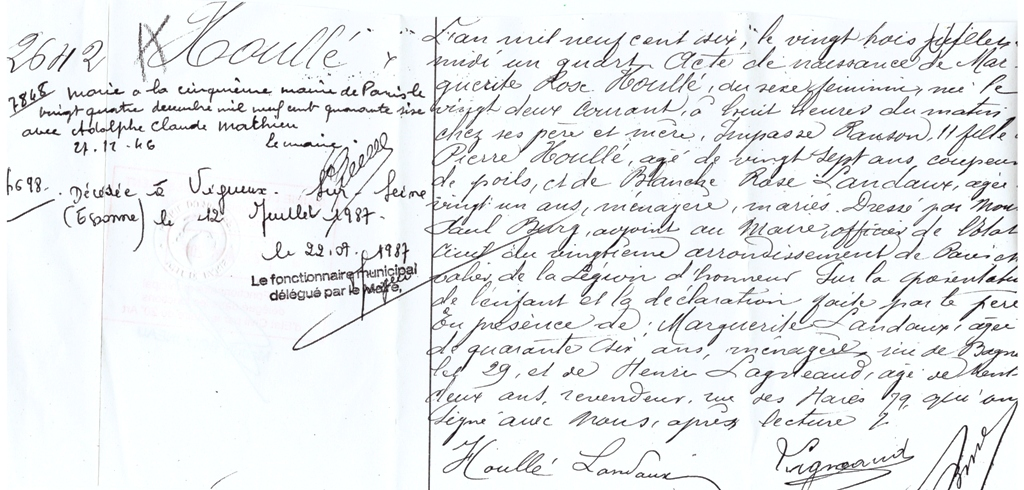 2642 Houllé
7848 Mariée à la cinquième mairie de Paris le
vingt quatre décembre mil neuf cent quarante six
avec Adolphe Claude Mathieu
27.12.46 Le maire,
Décédée à Vigneux-Sur-Seine
(Essonne) le 12 Juillet 1987-
le 22.07.1987
Le fonctionnaire municipal
délégué par le Maire,
L'an mil neuf cent six, le vingt trois juillet
midi un quart Acte de naissance de Mar-
guerite Rose Houllé, du sexe féminin, née le
vingt deux courant, à huit heures du matin
chez ses père et mère, Impasse Ranson, 11 fille
Pierre Houllé, agé de vingt sept ans, coupeur
de poils, et de Blanche Rose Landaux, agée
vingt un ans, ménagère, mariés. Dressé par Nous
Paul Burg, adjoint au Maire, officier de l'état
civil du vingtième arrondissement de Paris
de la Légion d'honneur Sur la présentation
de l'enfant et la déclaration faite par le père
En présence de: Marguerite Landaux, agée
de quarante six ans, ménagère, rue de Bagno
let 29, et de Henri Lagneaud, agé de trent
deux ans, revendeur, rue des Haies 79, qui on
signé avec Nous, après lecture
Houllé Landaux Lagneaud